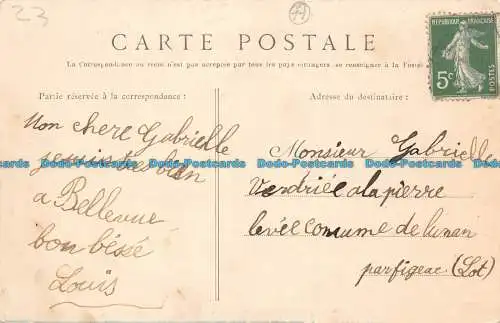 23
CARTE POSTALE
La Correspondance au recto n'est pas acceptée par tous les pays étrangers. (Se renseigner à la Poste)
RÉPUBLIQUE FRANÇAISE
5c
POSTES
Partie réservée à la correspondance :
Adresse du destinataire :
Mon chere Gabrielle
je suis bien
a Bellevue
bon béssé
Louis
Monsieur Gabrielle
a la pierre
levéé Comume de lunan
par figeac. (Lot)
Bluedot-Postcards Bluedot-Postcards Bluedot-Postcards